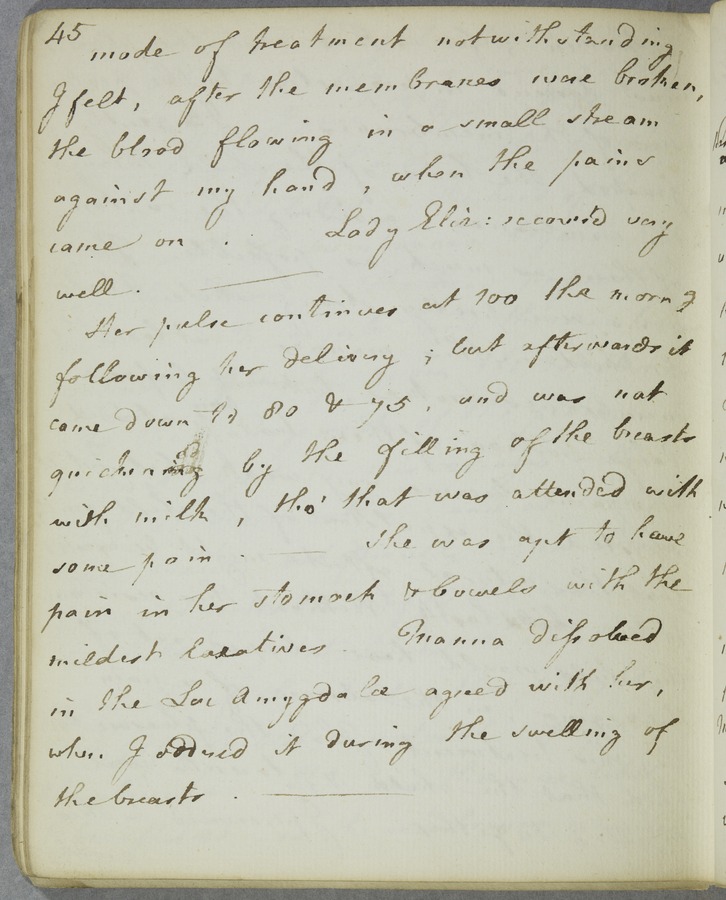 45
mode of treatment notwithstanding
I felt, after the membranes were broken,
the blood flowing in a small stream
against my hand, when the pains
came on . Lady Eliz: recover'd very
well .
Her pulse continues at 100 the morng
following her delivery ; but afterwards it
came down to 80 & 75, and was not
by the filling of the breasts
with milk, tho' that was attended with
some pain . She was apt to have
pain in her stomach & bowels with the
mildest laxatives . Manna dissolved
in the Lac Amygdalae agreed with her,
when I it during the swelling of
the breasts .